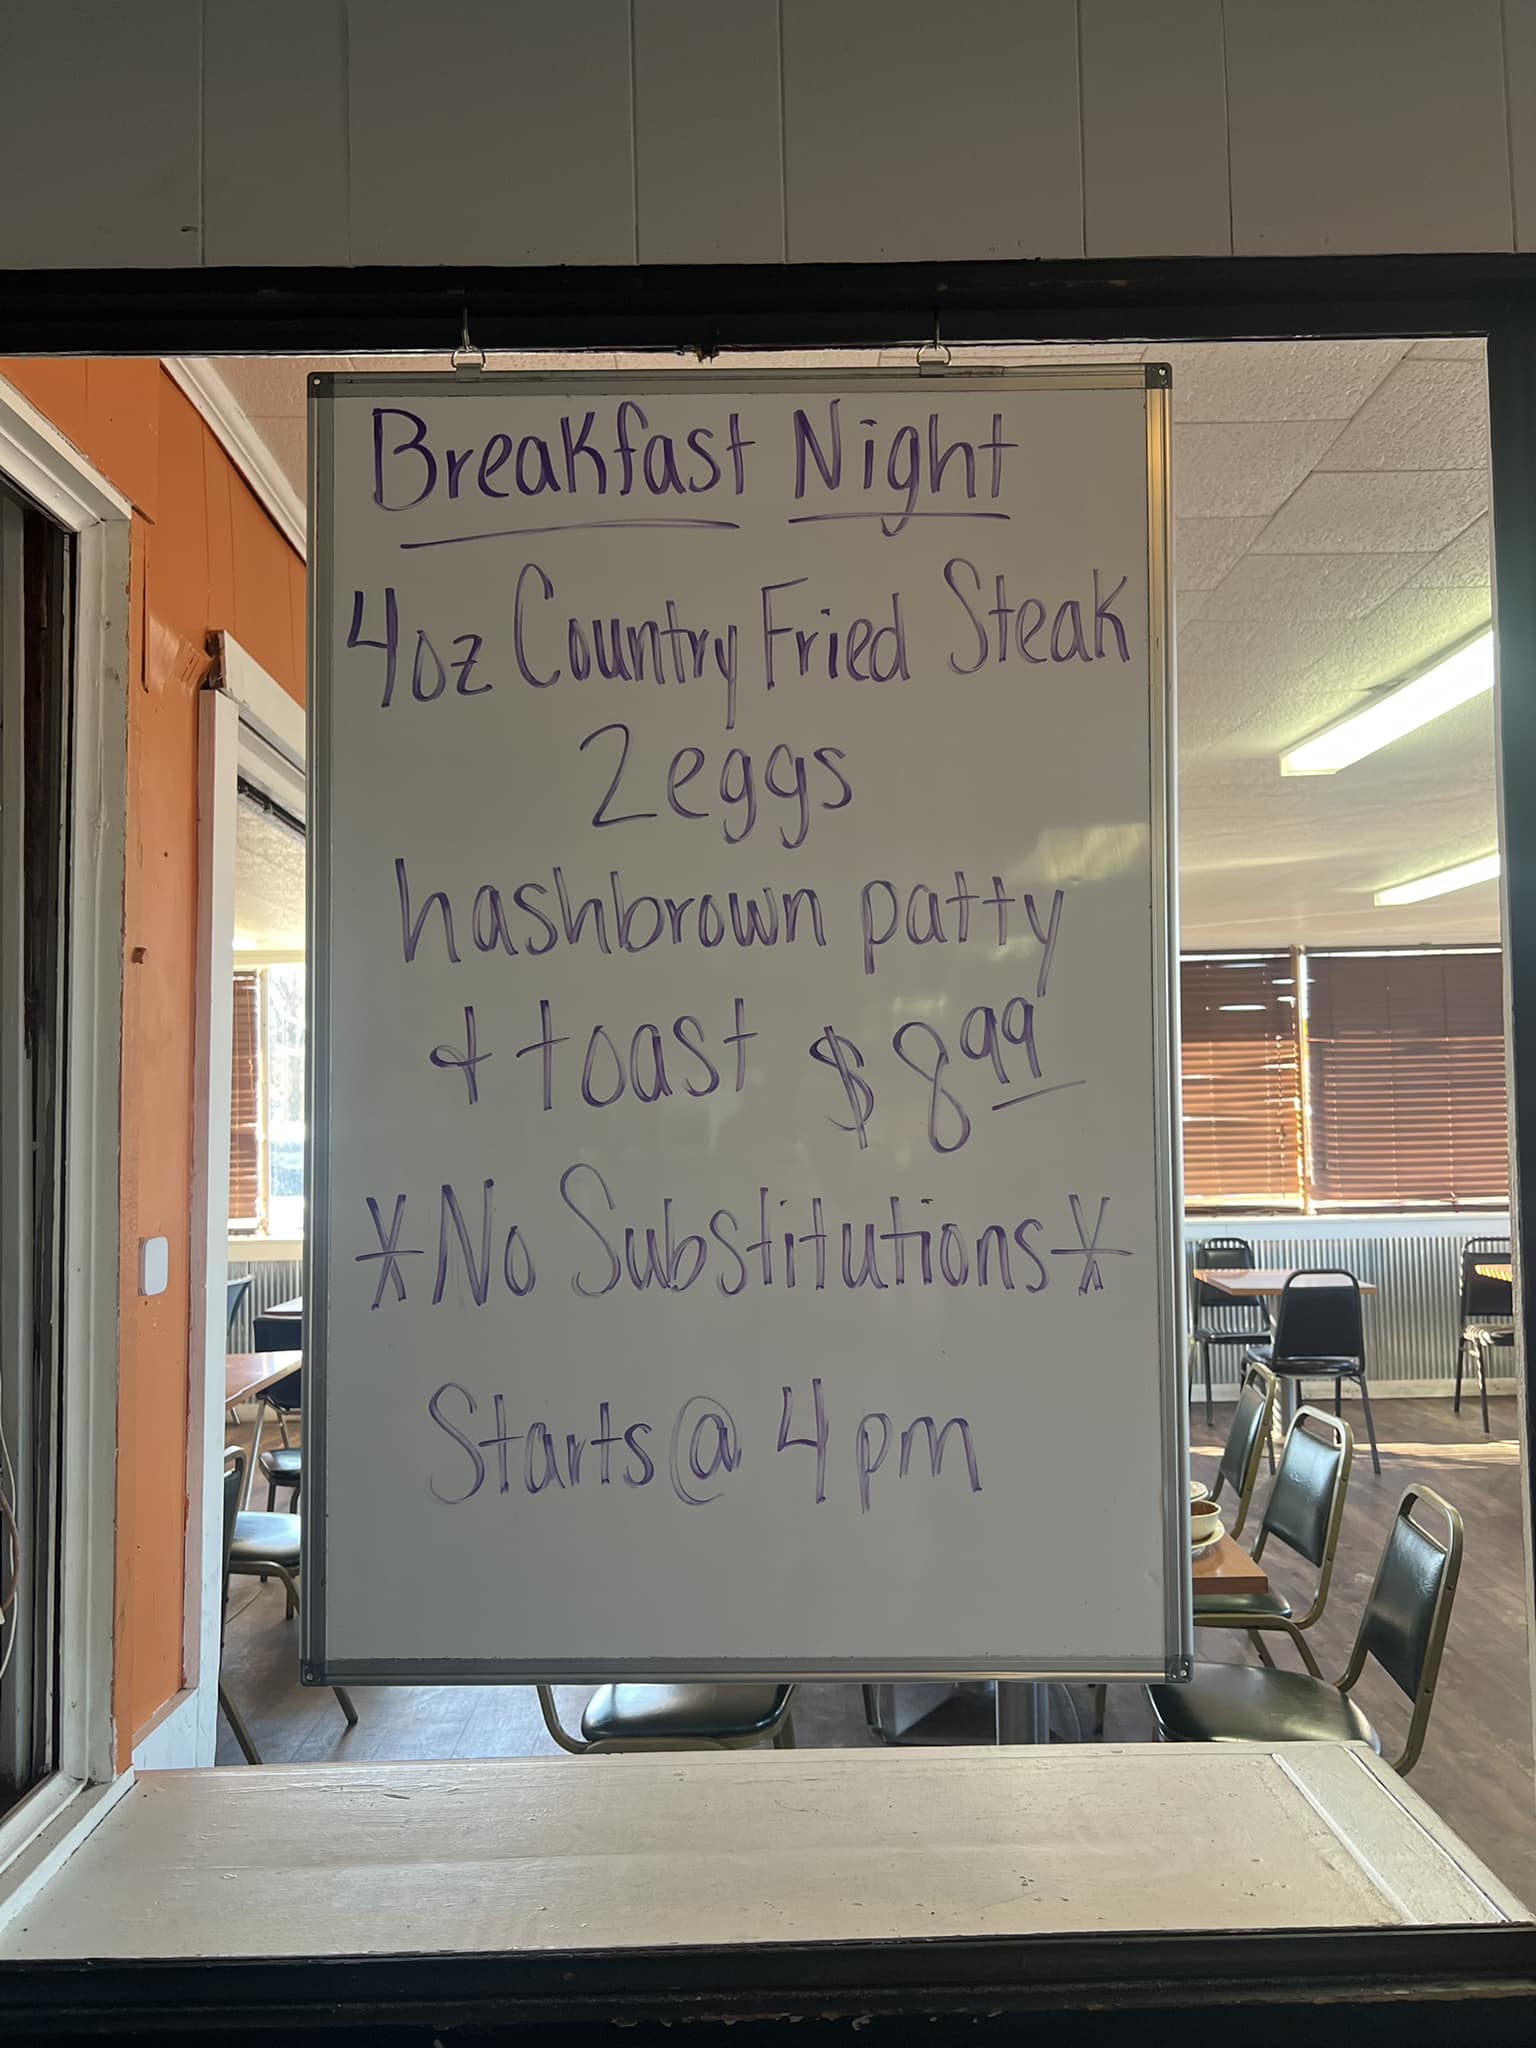 Breakfast Night
4oz Country Fried Steak
2 eggs
hashbrown patty
& toast $8.99
*No Substitutions*
Starts @ 4pm